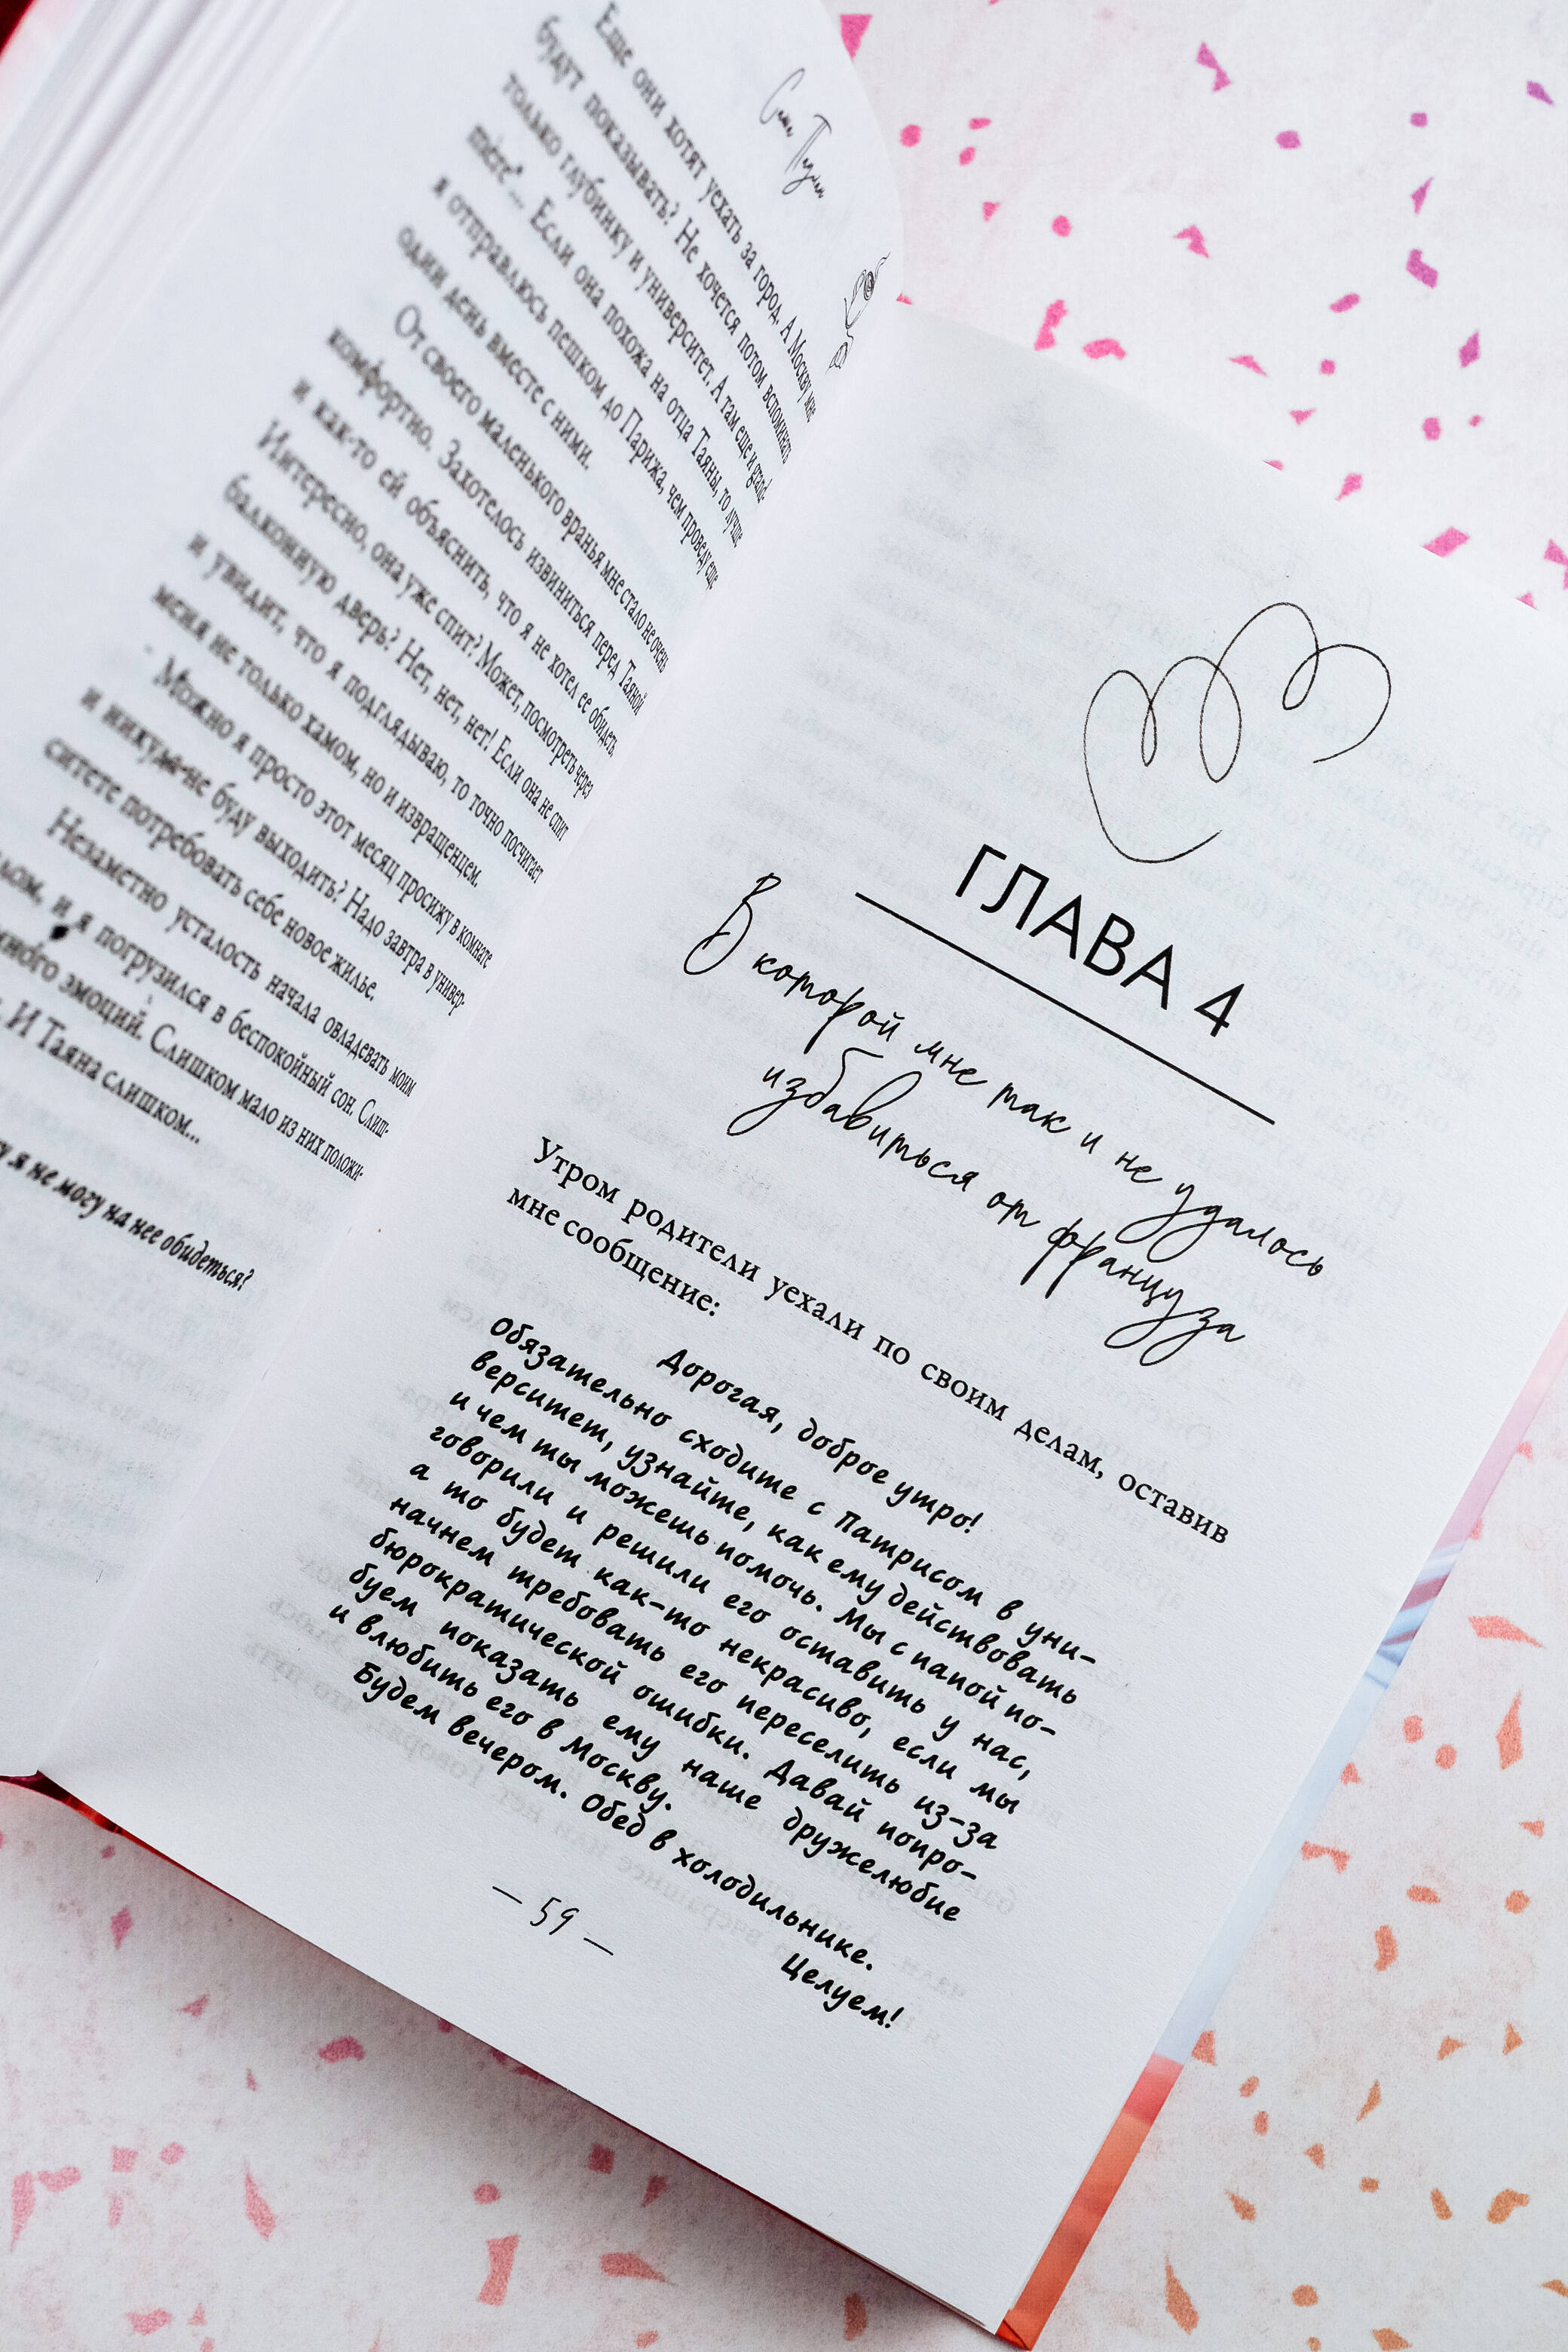 Еще они хотят уехать за город. А Москву мне
будут показывать? Не хочется потом вспоминать
только глубинку и университет. А там еще и grand-
mère*... Если она похожа на отца Таяны, то лучше
я отправлюсь пешком до Парижа, чем проведу еще
один день вместе с ними.
От своего маленького вранья мне стало не очень
комфортно. Захотелось извиниться перед Таяной
и как-то ей объяснить, что я не хотел ее обидеть.
Интересно, она уже спит? Может, посмотреть через
балконную дверь? Нет, нет, нет! Если она не спит
и увидит, что я подглядываю, то точно посчитает
меня не только хамом, но и извращенцем.
Можно я просто этот месяц просижу в комнате
и никуда не буду выходить? Надо завтра в универ-
ситете потребовать себе новое жилье.
Незаметно усталость начала овладевать моим
и я погрузился в беспокойный сон. Слиш-
много эмоций. Слишком мало из них положи-
И Таяна слишком...
я не могу на нее обидеться?
ГЛАВА 4
В которой мне так и не удалось
избавиться от француза
Утром родители уехали по своим делам, оставив
мне сообщение:
Дорогая, доброе утро!
Обязательно сходите с Патрисом в уни-
верситет, узнайте, как ему действовать
и чем ты можешь помочь. Мы с папой по-
говорили и решили его оставить у нас,
а то будет как-то некрасиво, если мы
начнем требовать его переселить из-за
бюрократической ошибки. Давай попро-
буем показать ему наше дружелюбие
и влюбить его в Москву.
Будем вечером. Обед в холодильнике.
Целуем!
— 59 —